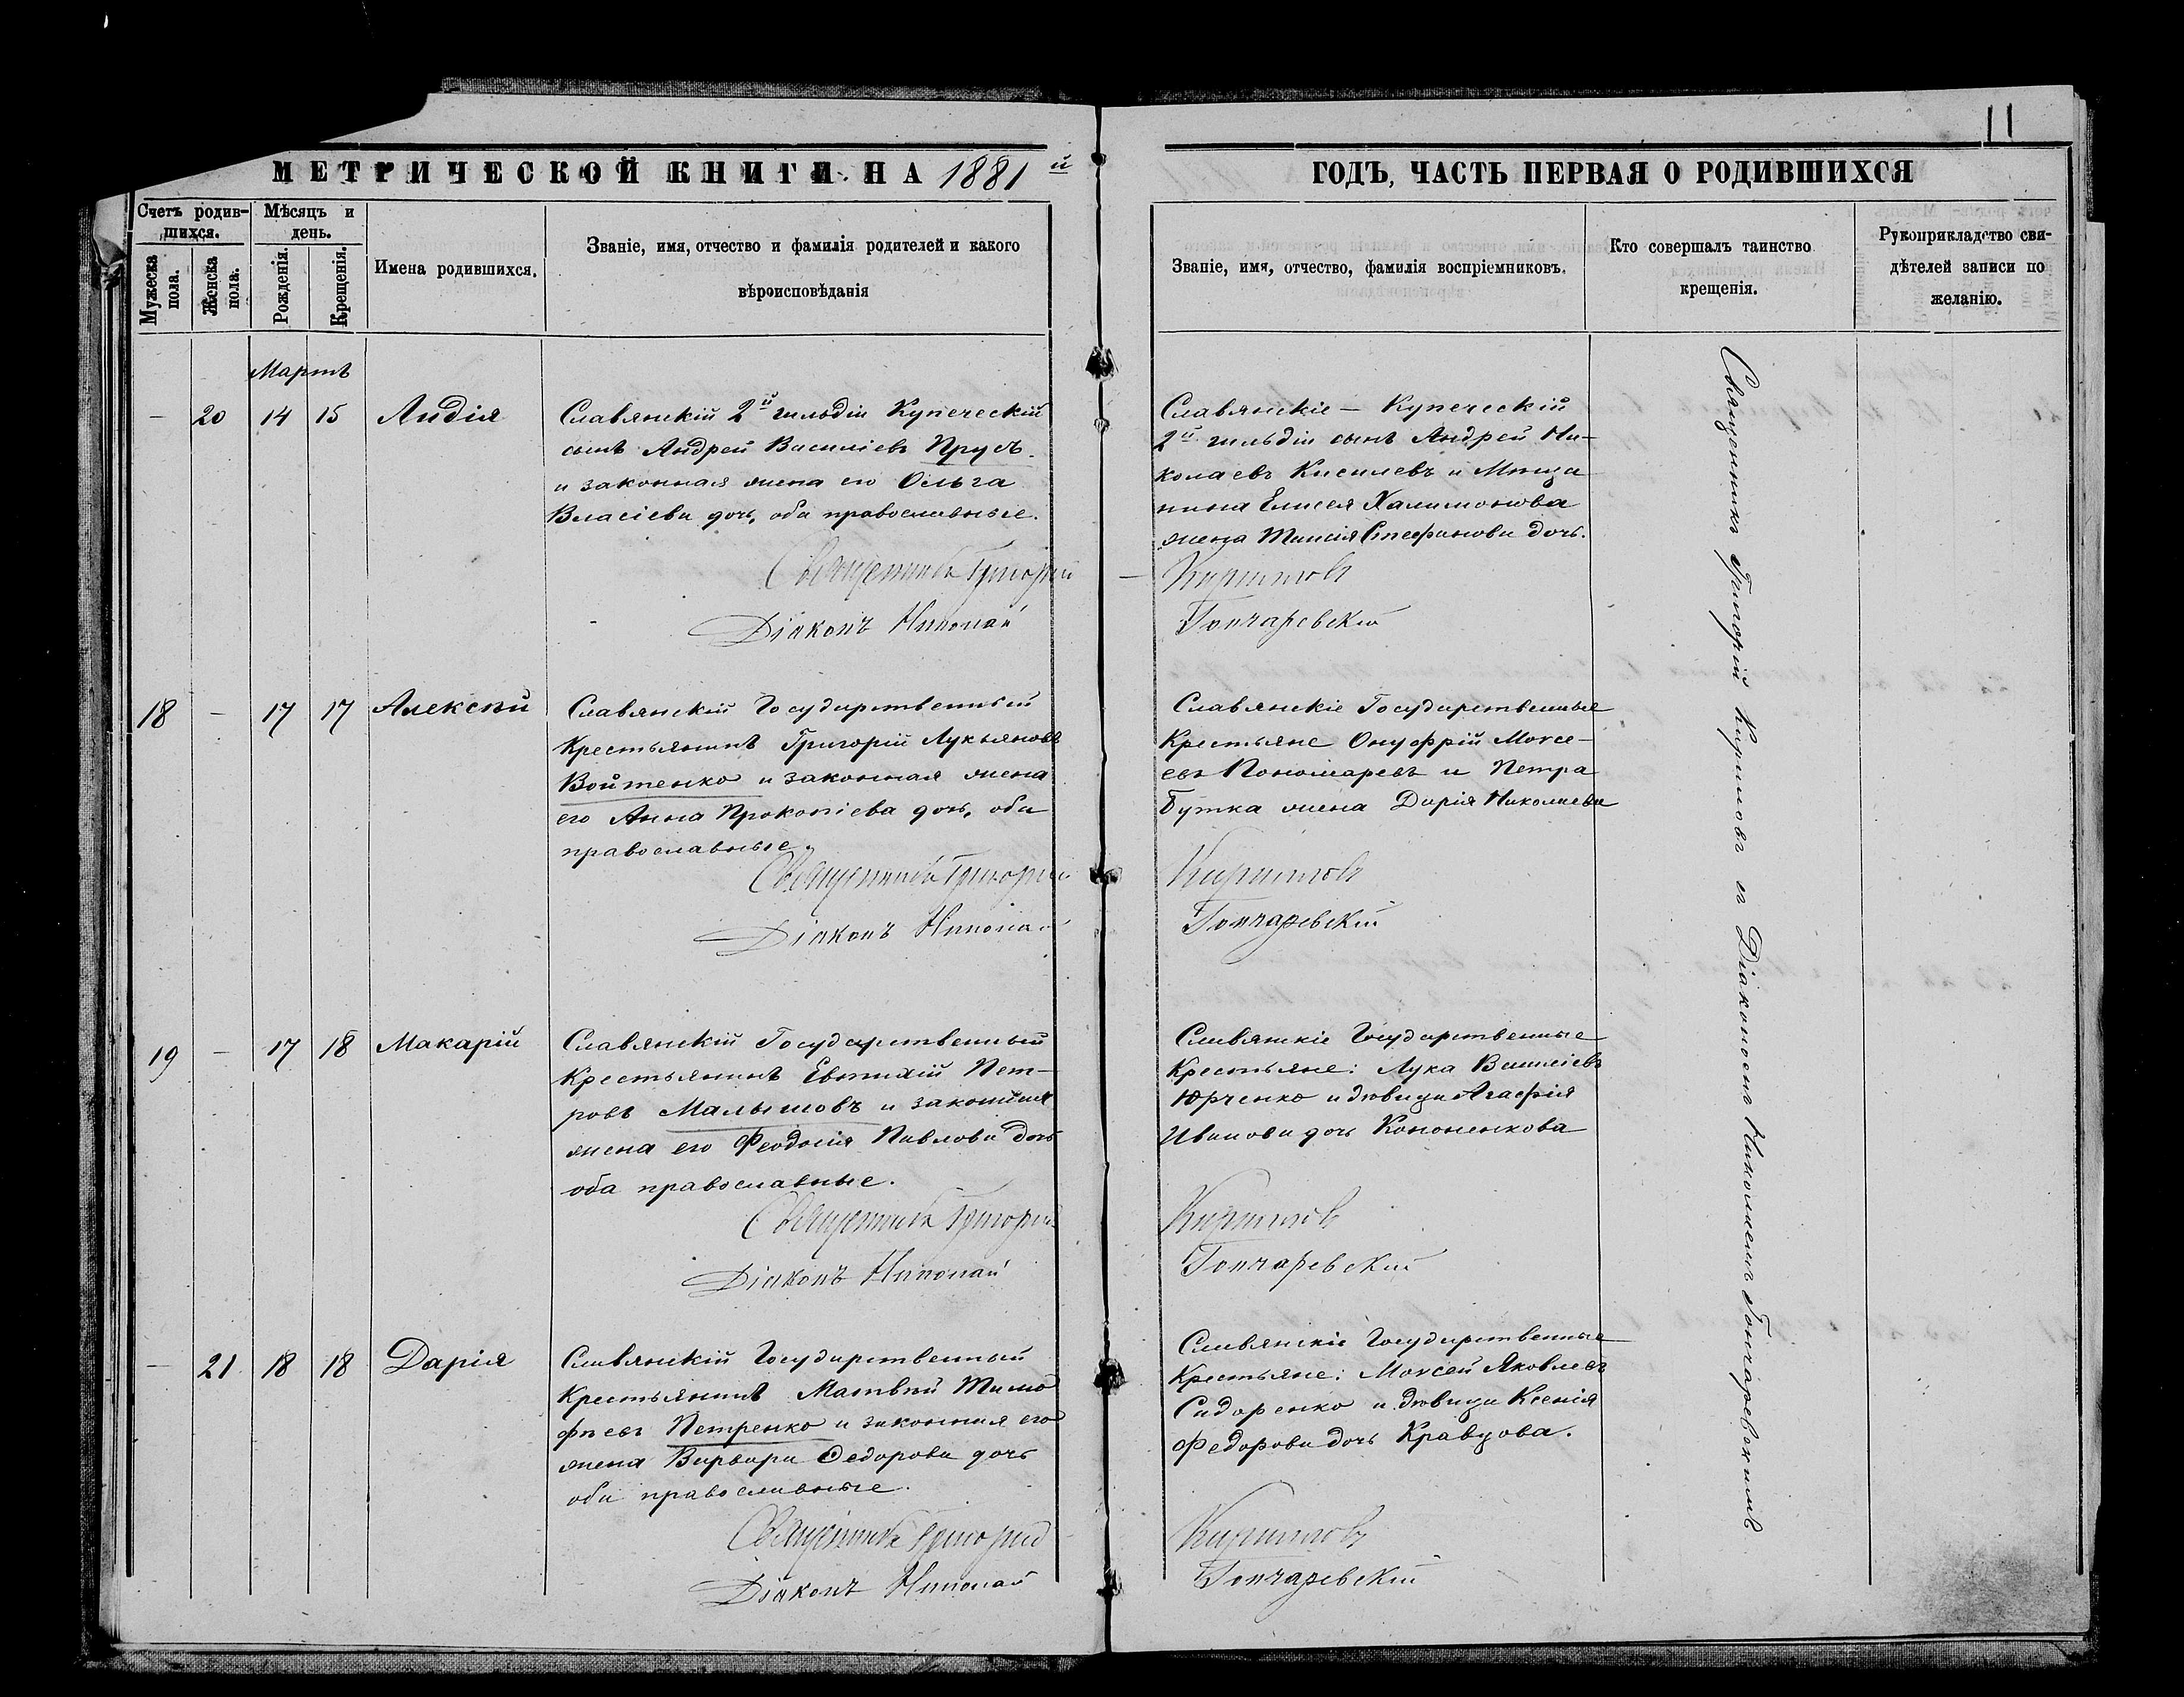 11
МЕТРИЧЕСКОЙ КНИГИ НА 1881 й
ГОДЪ, ЧАСТЬ ПЕРВАЯ О РОДИВШИХСЯ
Счетъ родив-
шихся.
Мужеска
пола.
Женска
пола.
Мѣсяцъ и
день.
Рожденія.
Крещенія.
Имена родившихся.
Званіе, имя, отчество и фамилія родителей и какого
вѣроисповѣданія
Званіе, имя, отчество, фамилія воспріемниковъ.
Кто совершалъ таинство
крещенія.
Рукоприкладство сви-
дѣтелей записи по
желанію.
Мартъ
— 20 14 15 Лидія
Славянскій 2й гильдіи Купеческій
сынъ Андрей Василіевъ Прудъ
и законная жена его Ольга
Власіева дочь, оба православные.
Священникъ Григорій
Діаконъ Николай
Славянскіе — Купеческій
2й гильдіи сынъ Андрей Ни-
колаевъ Киселевъ и Мѣща
нина Елисея Халимонова
жена Таисія Стефанова дочь.
Кириловъ
Гончаревскій
18 — 17 17 Алексѣй
Славянскій Государственный
Крестьянинъ Григорій Лукьяновъ
Войтенко и законная жена
его Анна Прокопіева дочь, оба
православные.
Священникъ Григорій
Діаконъ Николай
Славянскіе Государственные
Крестьяне Онуфрій Моисе-
евъ Пономаревъ и Петра
Бутка жена Дарія Николаева
Кириловъ
Гончаревскій
19 — 17 18 Макарій
Славянскій Государственный
Крестьянинъ Евтихій Пет-
ровъ Малышовъ и законная
жена его Феодосія Павлова дочь
оба православные.
Священникъ Григорій
Діаконъ Николай
Славянскіе Государственные
Крестьяне: Лука Василіевъ
Юрченко и дѣвица Агафія
Иванова дочь Кононенкова
Кириловъ
Гончаревскій
— 21 18 18 Дарія
Славянскій Государственный
Крестьянинъ Матвѣй Тимо
фѣевъ Петренко и законная его
жена Варвара Федорова дочь
оба православные.
Священникъ Григорій
Діаконъ Николай
Славянскіе Государственные
Крестьяне: Моисей Яковлевъ
Сидоренко и дѣвица Ксенія
Федорова дочь Кравцова.
Кириловъ
Гончаревскій
Священникъ Григорій Кириловъ съ Діакономъ Николаемъ Гончаревскимъ